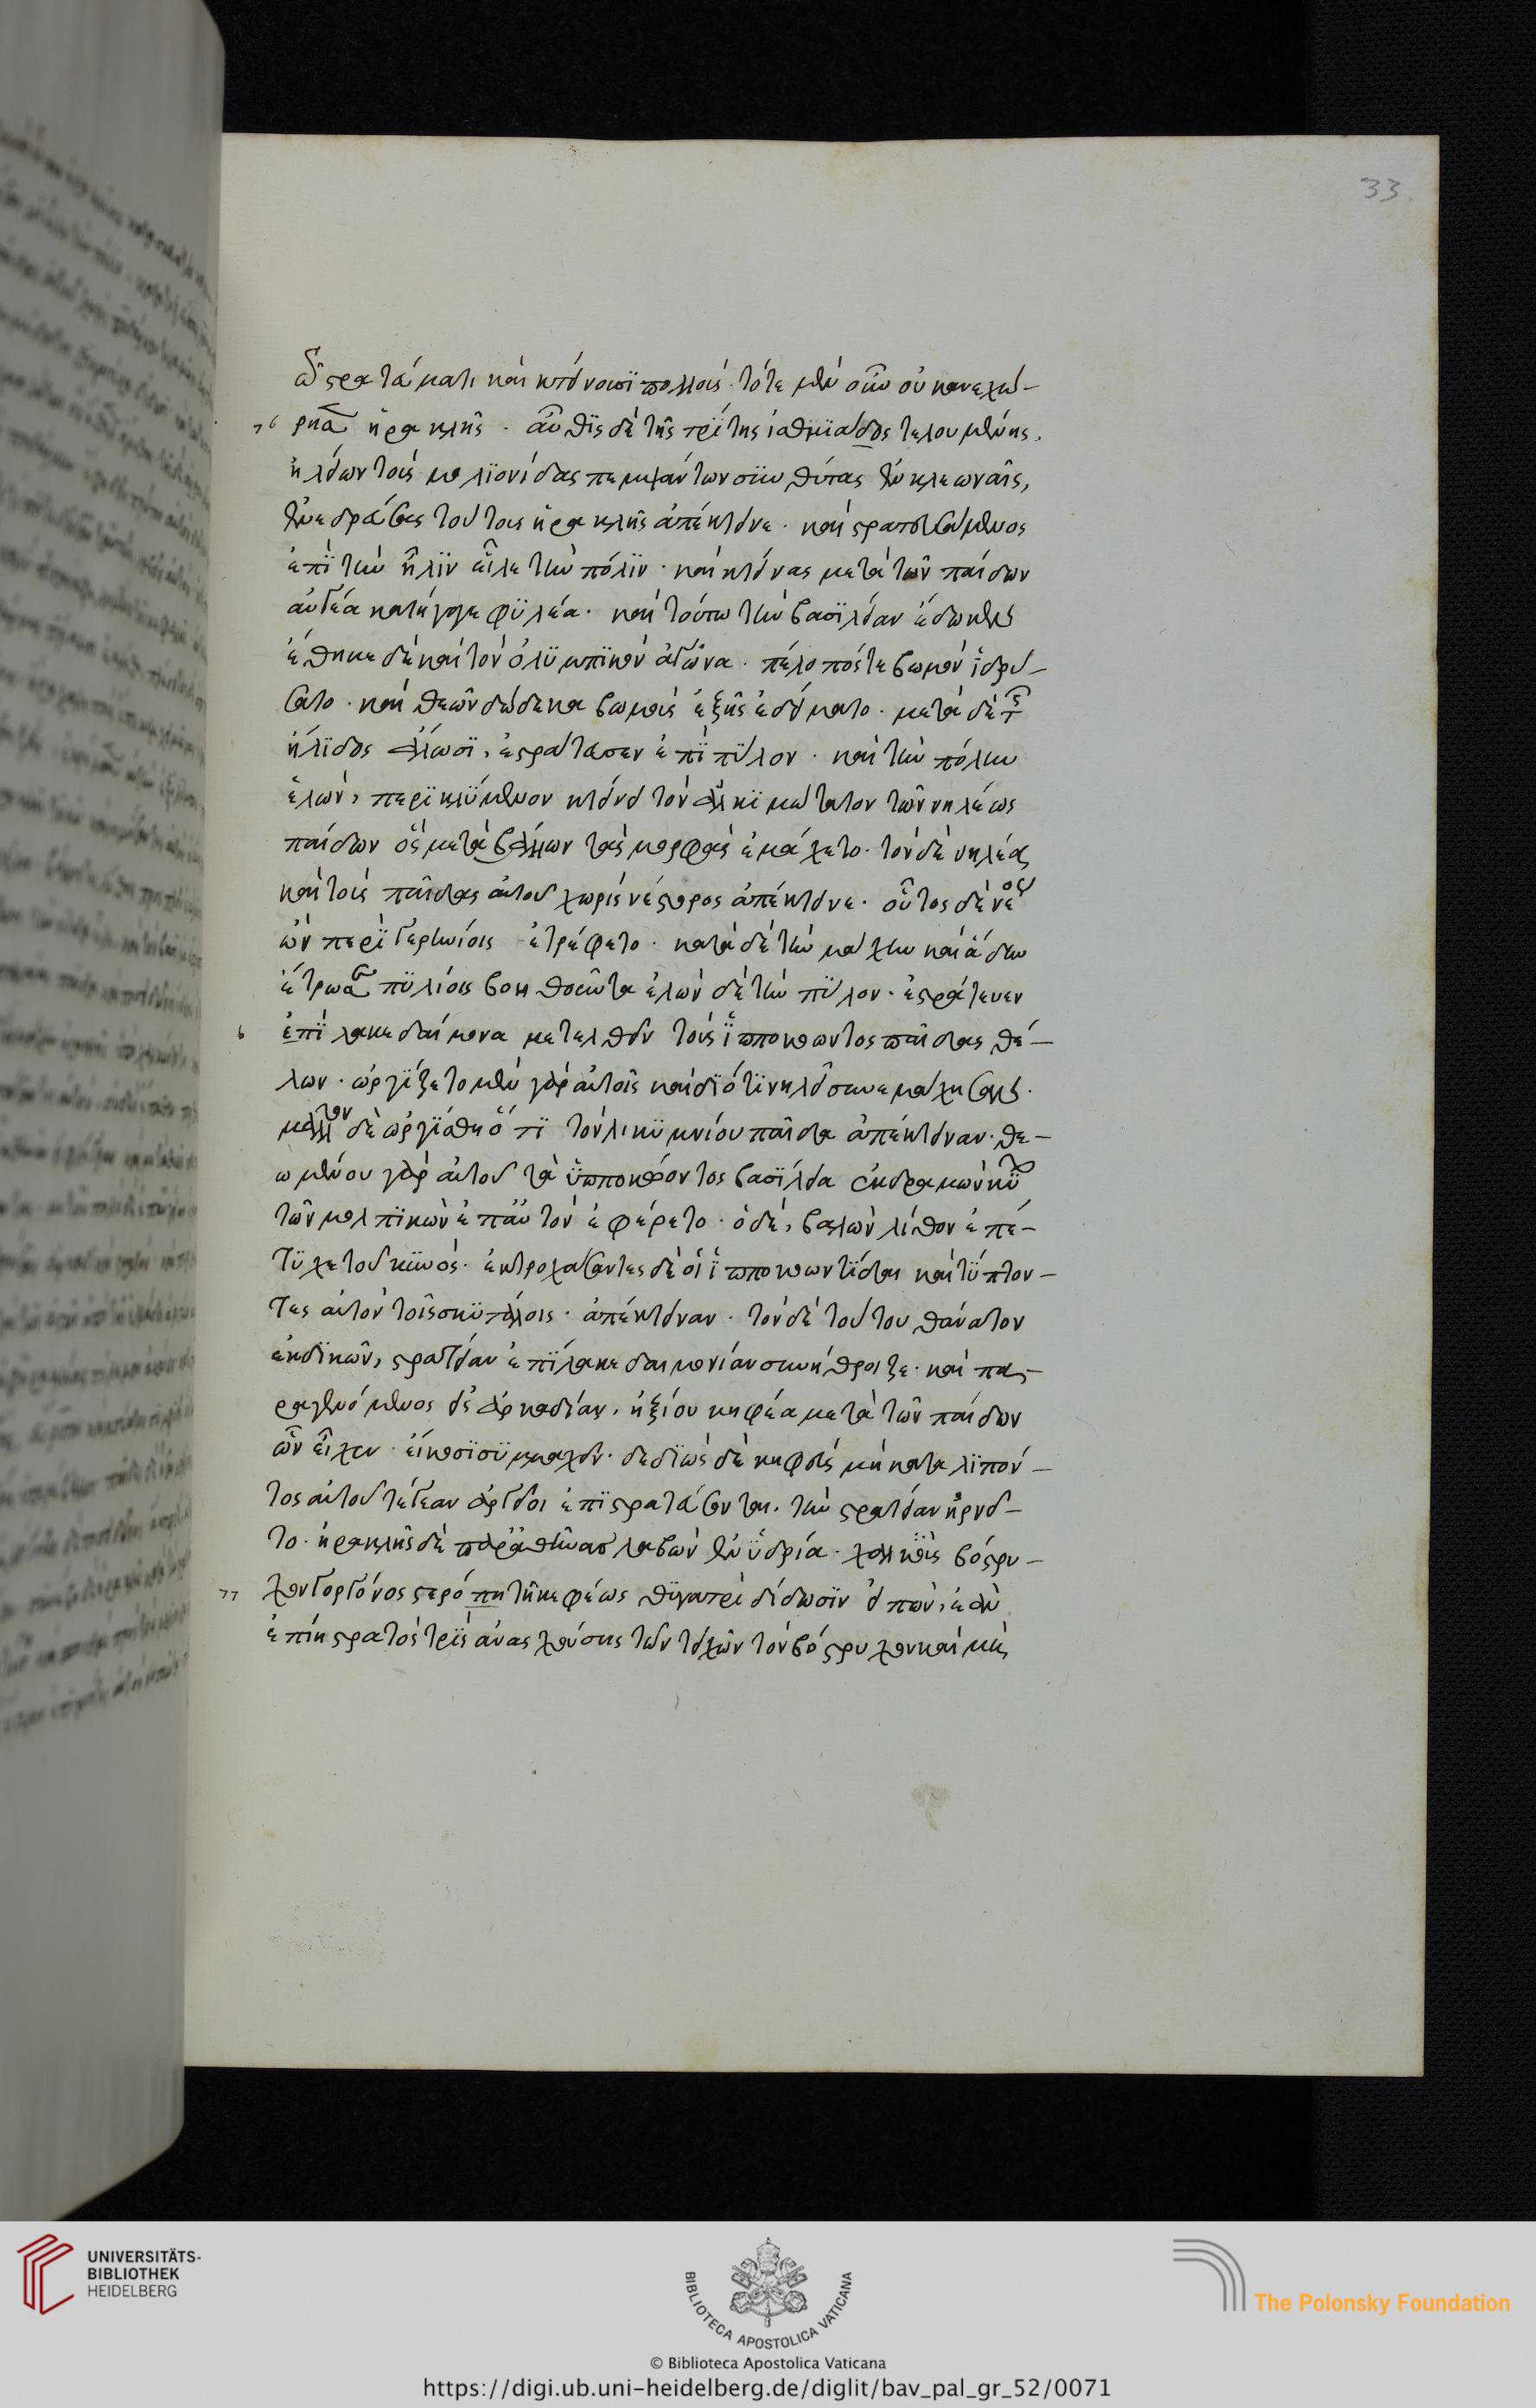 33
στρατεύματι καὶ κτείνουσι πολλούς. τότε μὲν οὖν οὐκ ἀνεχώ-
76 ρησεν ἡρακλῆς . αὖθις δὲ τῆς τρίτης ἰσθμιάδος τελουμένης,
ἠλείων τοὺς μολιονίδας πεμψάντων συνθύτας ἐν κλεωναῖς,
ἐνεδρεύσας τούτους ἡρακλῆς ἀπέκτεινε. καὶ στρατευσάμενος
ἐπὶ τὴν ἦλιν εἷλε τὴν πόλιν. καὶ κτείνας μετὰ τῶν παίδων
αὐγέα κατήγαγε φυλέα. καὶ τούτω τὴν βασιλείαν ἔδωκεν
ἔθηκε δὲ καὶ τὸν ὀλυμπικὸν ἀγῶνα. πέλοπός τε βωμὸν ἱδρύ-
σατο. καὶ θεῶν δώδεκα βωμοὺς ἑξῆς ἐδείματο. μετὰ δὲ τ
ἤλιδος ἅλωσι, ἐστράτευσεν ἐπὶ πύλον. καὶ τὴν πόλιν
ἑλὼν, περικλύμενον κτείνει τὸν ἀλκιμώτατον τῶν νηλέως
παίδων ὃς μεταβάλλων τὰς μορφὰς ἐμάχετο. τὸν δὲ νηλέα
καὶ τοὺς παῖδας αὐτοῦ χωρὶς νέστορος ἀπέκτεινε. οὗτος δὲ νέος
ὢν περὶ γερηνίοις ἐτρέφετο. κατὰ δὲ τὴν μάχην καὶ ἅδην
ἔτρωσε πυλίοις βοηθοῦντα ἑλὼν δὲ τὴν πύλον. ἐστράτευεν
6 ἐπὶ λακεδαίμονα μετελθεῖν τοὺς ἱπποκόωντος παῖδας θέ-
λων. ὠργίζετο μὲν γὰρ αὐτοῖς καὶ διότι νηλεῖ συνεμάχησαν.
μᾶλλον δὲ ὠργίσθη ὅτι τὸν λικυμνίου παῖδα ἀπέκτειναν. θε-
ωμένου γὰρ αὐτοῦ τὰ ἱπποκόοντος βασίλεια ἐκδραμὼν κύ
τῶν μολπικῶν ἐπ' αὐτὸν ἐφέρετο. ὁ δὲ, βαλὼν λίθον ἐπέ-
τυχε τοῦ κυνός. ἐκτροχάσαντες δὲ οἱ ἱπποκοωντίδαι καὶ τύπτον-
τες αὐτὸν τοῖς σκυτάλοις. ἀπέκτειναν. τὸν δὲ τούτου θάνατον
ἐκδικῶν, στρατείαν ἐπὶ λακεδαιμονίαν συνήθροιζε. καὶ πα-
ραγενόμενος εἰς ἀρκαδίαν, ἠξίου κηφέα μετὰ τῶν παίδων
ὧν εἶχεν. εἴκοσι συμμαχεῖν. δεδιὼς δὲ κηφεὺς μὴ καταλιπόν-
τος αὐτοῦ τέγεαν ἀργεῖοι ἐπιστρατεύσωνται. τὴν στρατείαν ἠρνεῖ-
το. ἡρακλῆς δὲ παρ' ἀθηνᾶς λαβὼν ἐν ὑδρία. χαλκοῦς βόστρυ-
77 χον γοργόνος στερόπη τῆ κεφέως θυγατρὶ δίδωσιν εἰπὼν, ἐὰν
ἐπίη στρατὸς τρὶς ἀνασχούσης τῶν τειχῶν τὸν βόστρυχον καὶ μὴ
UNIVERSITÄTS-
BIBLIOTHEK
HEIDELBERG
BIBLIOTECA APOSTOLICA VATICANA
The Polonsky Foundation
© Biblioteca Apostolica Vaticana
https://digi.ub.uni-heidelberg.de/diglit/bav_pal_gr_52/0071